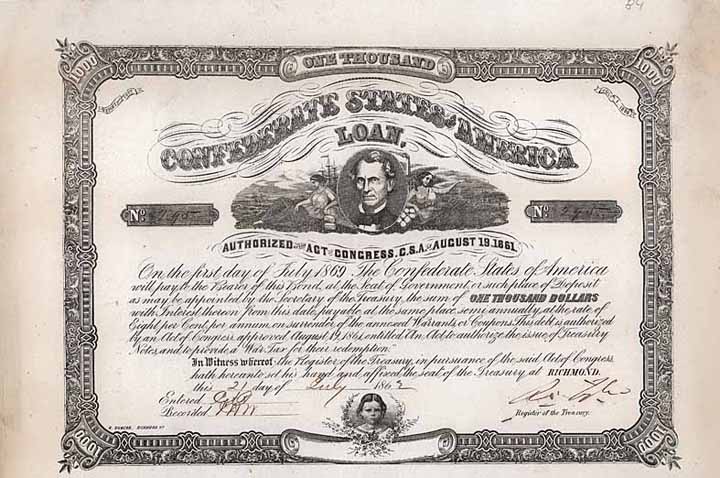 84
ONE THOUSAND
1000 1000
CONFEDERATE STATES OF AMERICA
LOAN,
No No
AUTHORIZED BY THE ACT OF CONGRESS, C.S.A. OF AUGUST 19, 1861.
On the first day of July 1869 The Confederate States of America
will pay to the Bearer of this Bond, at the Seat of Government, or such place of Deposit
as may be appointed by the Secretary of the Treasury, the sum of ONE THOUSAND DOLLARS
with Interest thereon from this date, payable at the same place semi annually, at the rate of
Eight per Cent per annum, on surrender of the annexed Warrants or Coupons. This debt is authorized
by an Act of Congress, approved August 19, 1861, entitled An Act to authorize the issue of Treasury
Notes, and to provide a War Tax for their redemption.
In Witness whereof, the Register of the Treasury, in pursuance of the said Act of Congress,
hath hereunto set his hand and affixed the seal of the Treasury, at RICHMOND,
this 2 day of July 1862
Entered
Recorded
Register of the Treasury.
1000 1000